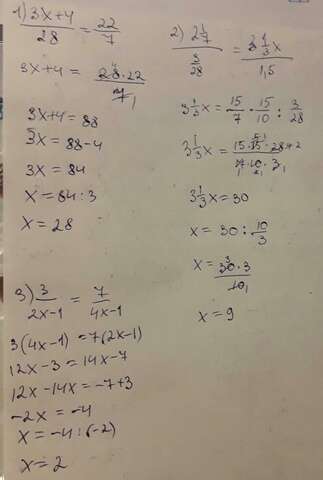 1) (3x+4)/28 = 22/7
3x+4 = (28⁴·22)/7₁
3x+4=88
3x=88-4
3x=84
x=84:3
x=28
2) (2 1/7)/(3/28) = (3 1/3 x)/1,5
3 1/3 x = 15/7 · 15/10 : 3/28
3 1/3 x = 30
x = 30 : 10/3
x = (30³·3)/10₁
x = 9
3) 3/(2x-1) = 7/(4x-1)
3(4x-1)=7(2x-1)
12x-3=14x-7
12x-14x=-7+3
-2x=-4
x=-4:(-2)
x=2